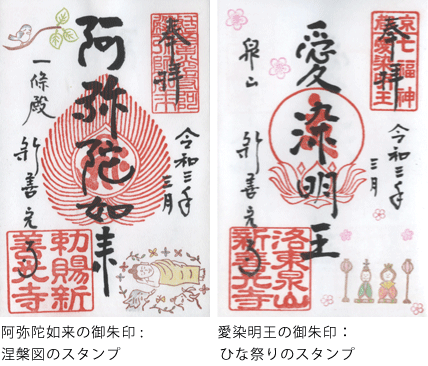 奉拝
令和三年
三月
阿弥陀如来
一條殿
新善光寺
勅賜新
善光寺
京七福神
愛染明王
奉拝
令和三年
三月
愛染明王
泉山
新善光寺
洛東泉山
新善光寺
阿弥陀如来の御朱印：
涅槃図のスタンプ
愛染明王の御朱印：
ひな祭りのスタンプ